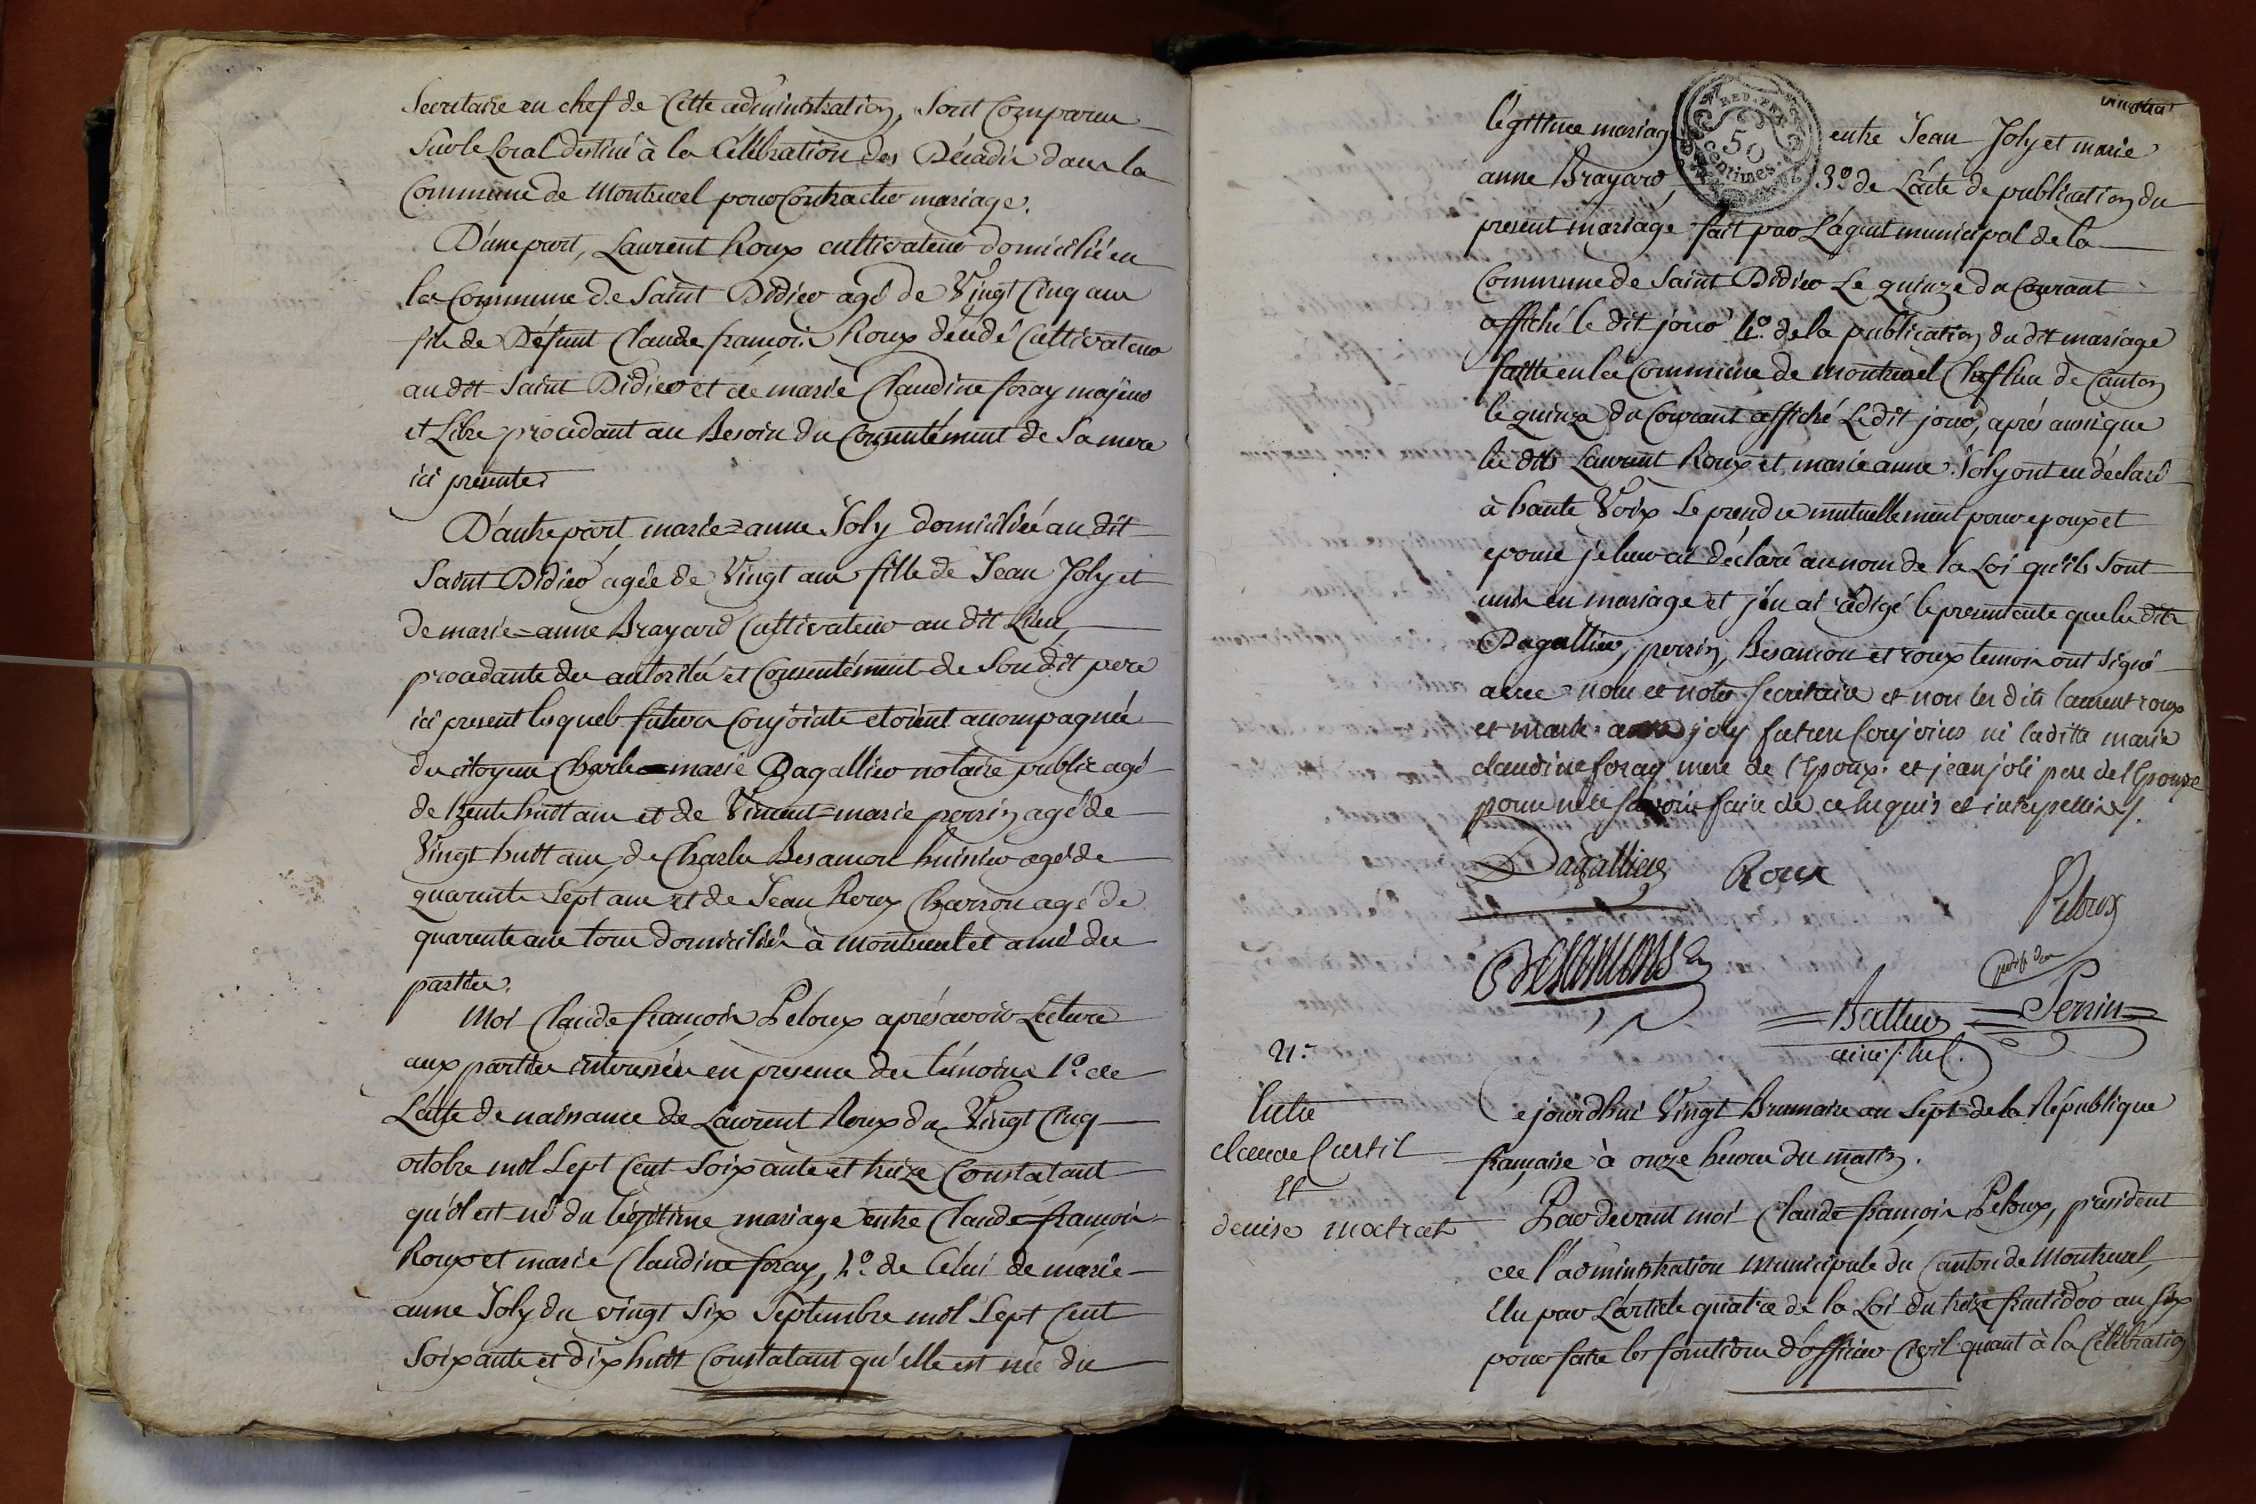 Secretaire en chef de Cette administration, Sont Comparus
Sur le Local destiné à la Célébration des Décadis dans la
Commune de Montrevel pour Contracter mariage.
D'une part, Laurent Roux cultivateur domicilié en
la Commune de Saint Didier agé de Vingt Cinq ans
fils de Défunt Claude françois Roux décédé Cultivateur
au dit Saint Didier et de marie Claudine foray majeur
et Libre procédant au Besoin du Consentément de Sa mere
ici présente.
D'autre part, marie=anne Joly domiciliée au dit
Saint Didier agée de Vingt ans fille de Jean Joly et
de marie=anne Brayard Cultivateur au dit Lieu,
procedante des autorités et Consentément de Son dit pere
ici present lesquels futurs Conjoints etoient acompagnés
du citoyens Charle marie Dagallier notaire public agé
de trente huit ans et de Vincent=marie perrin agé de
Vingt huit ans, de Charles Besancon huissier agé de
quarante Sept ans et de Jean Roux Charron agé de
quarante ans tous domiciliés à Montrevel et amis des
parties.
Moi Claude françois Peloux après avoir Lecture
aux parties interessées en presence des témoins 1.º de
L'acte de naissance de Laurent Roux du Vingt Cinq
octobre mil Sept Cent Soixante et treize Constatant
qu'il est né du légitime mariage entre Claude françois
Roux et marie Claudine foray, 2.º de Celui de marie
anne Joly du vingt Six Septembre mil Sept Cent
Soixante et dix huit Constatant qu'elle est née du
légitime mariage entre Jean Joly et marie
anne Brayard, 3.º de L'acte de publication du
present mariage fait par L'agent municipal de la
Commune de Saint Didier Le quinze du Courant
affiché le dit jour 4.º de la publication du dit mariage
faitte en la Commune de montrevel Chef lieu de Canton
le quinze du Courant affiché Le dit jour, après aussi que
les dits Laurent Roux et marie anne Joly ont eu déclaré
à haute Voix Se prendre mutuellement pour epoux et
epouse je leur ai déclaré au nom de la Loi qu'ils Sont
unis en mariage et j'en ai rédigé le present acte que les dits
Dagallier, perrin, Besancon et roux temoins ont Signé
avec nous et notre Secretaire et non les dits laurent roux
et marie anne joly futurs Conjoins ni la ditte marie
claudine foray mere de l'Epoux et jean joli pere de l'Epouse
pour ne le Savoir faire de ce Enquis et interpellés.
RED. PRX.
50
centimes.
Dagallier
Roux
Peloux
presid.
Besancons
Perrin
ainé S. Chef.
21.e
Entre
claude Curtil
Et
denise
Ce jourd'hui Vingt Brumaire an Sept de la République
française à onze heures du matin.
Par devant moi Claude françois Peloux, president
de l'administration municipale du Canton de Montrevel,
Elu par L'article quatre de la Loi du treize fructidor an Six
pour faire les fonctions d'officier Civil quant à la Célébration